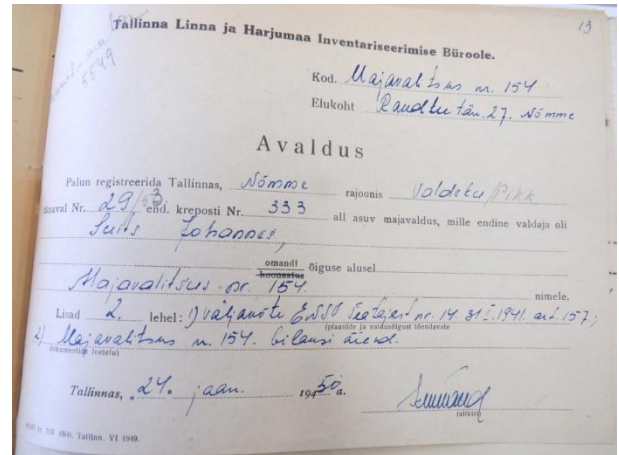 13
Tallinna Linna ja Harjumaa Inventariseerimise Büroole.
5549
Kod. Majavalitsus nr. 154
Elukoht Raudtee tän. 27. Nõmme
Avaldus
Palun registreerida Tallinnas, Nõmme rajoonis Valdeku/Pikk
tänaval Nr. 29/53, end. kreposti Nr. 333 all asuv majavaldus, mille endine valdaja oli
Suits Johannes,
omandi
hoonestus õiguse alusel
Majavalitsus nr. 154. nimele.
Lisad 2. lehel: 1) väljavõte ENSV Teatajast nr. 14. 31 I. 1941. art. 157;
(plaanide ja valdusõigust tõendavate
2) Majavalitsus n. 154. bilansi äiend.
dokumentide loetelu)
Tallinnas, „24“ jaan. 1950 a.
(allkiri)
Tallinn. VI 1949.